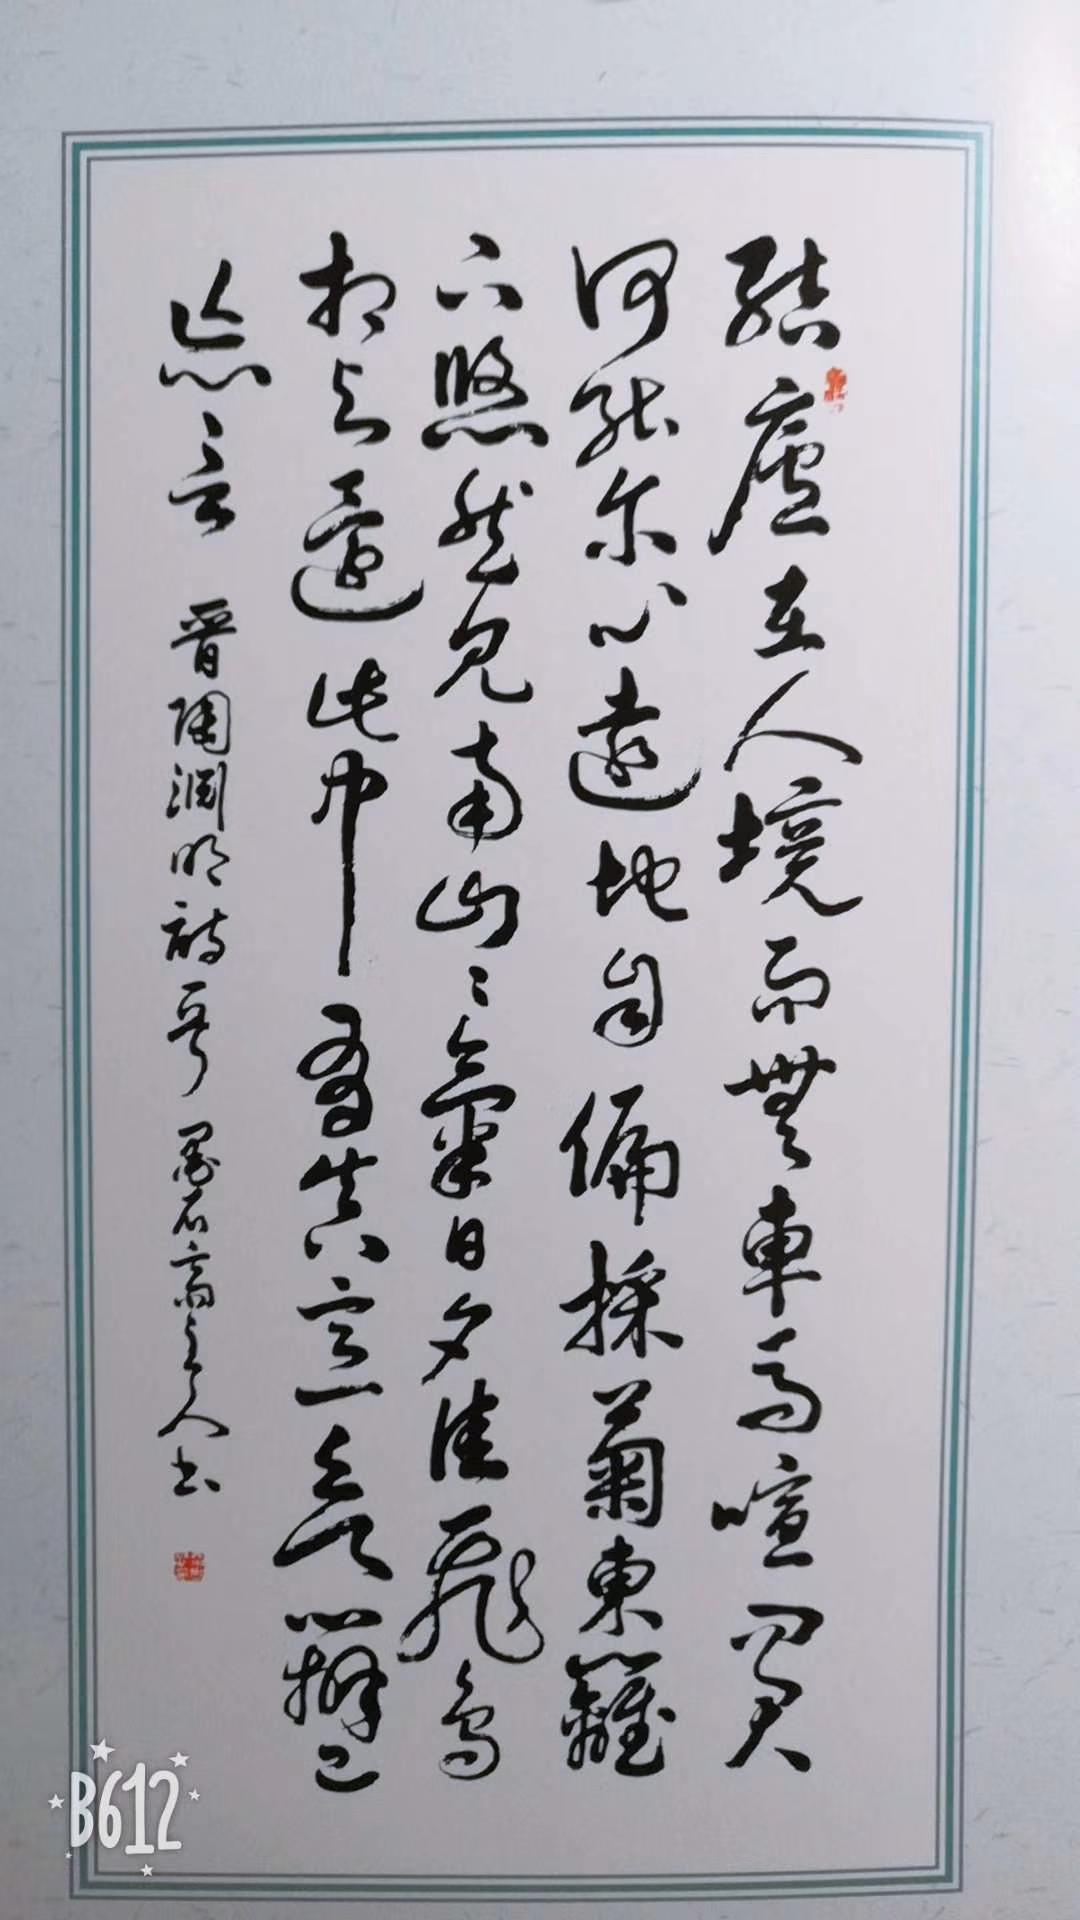 結廬在人境而無車馬喧問君
何能尔心遠地自偏採菊東籬
下悠然見南山〻氣日夕佳飛鳥
相与還此中有真意欲辯已
忘言 晉陶淵明詩 墨石齋主人书
B612